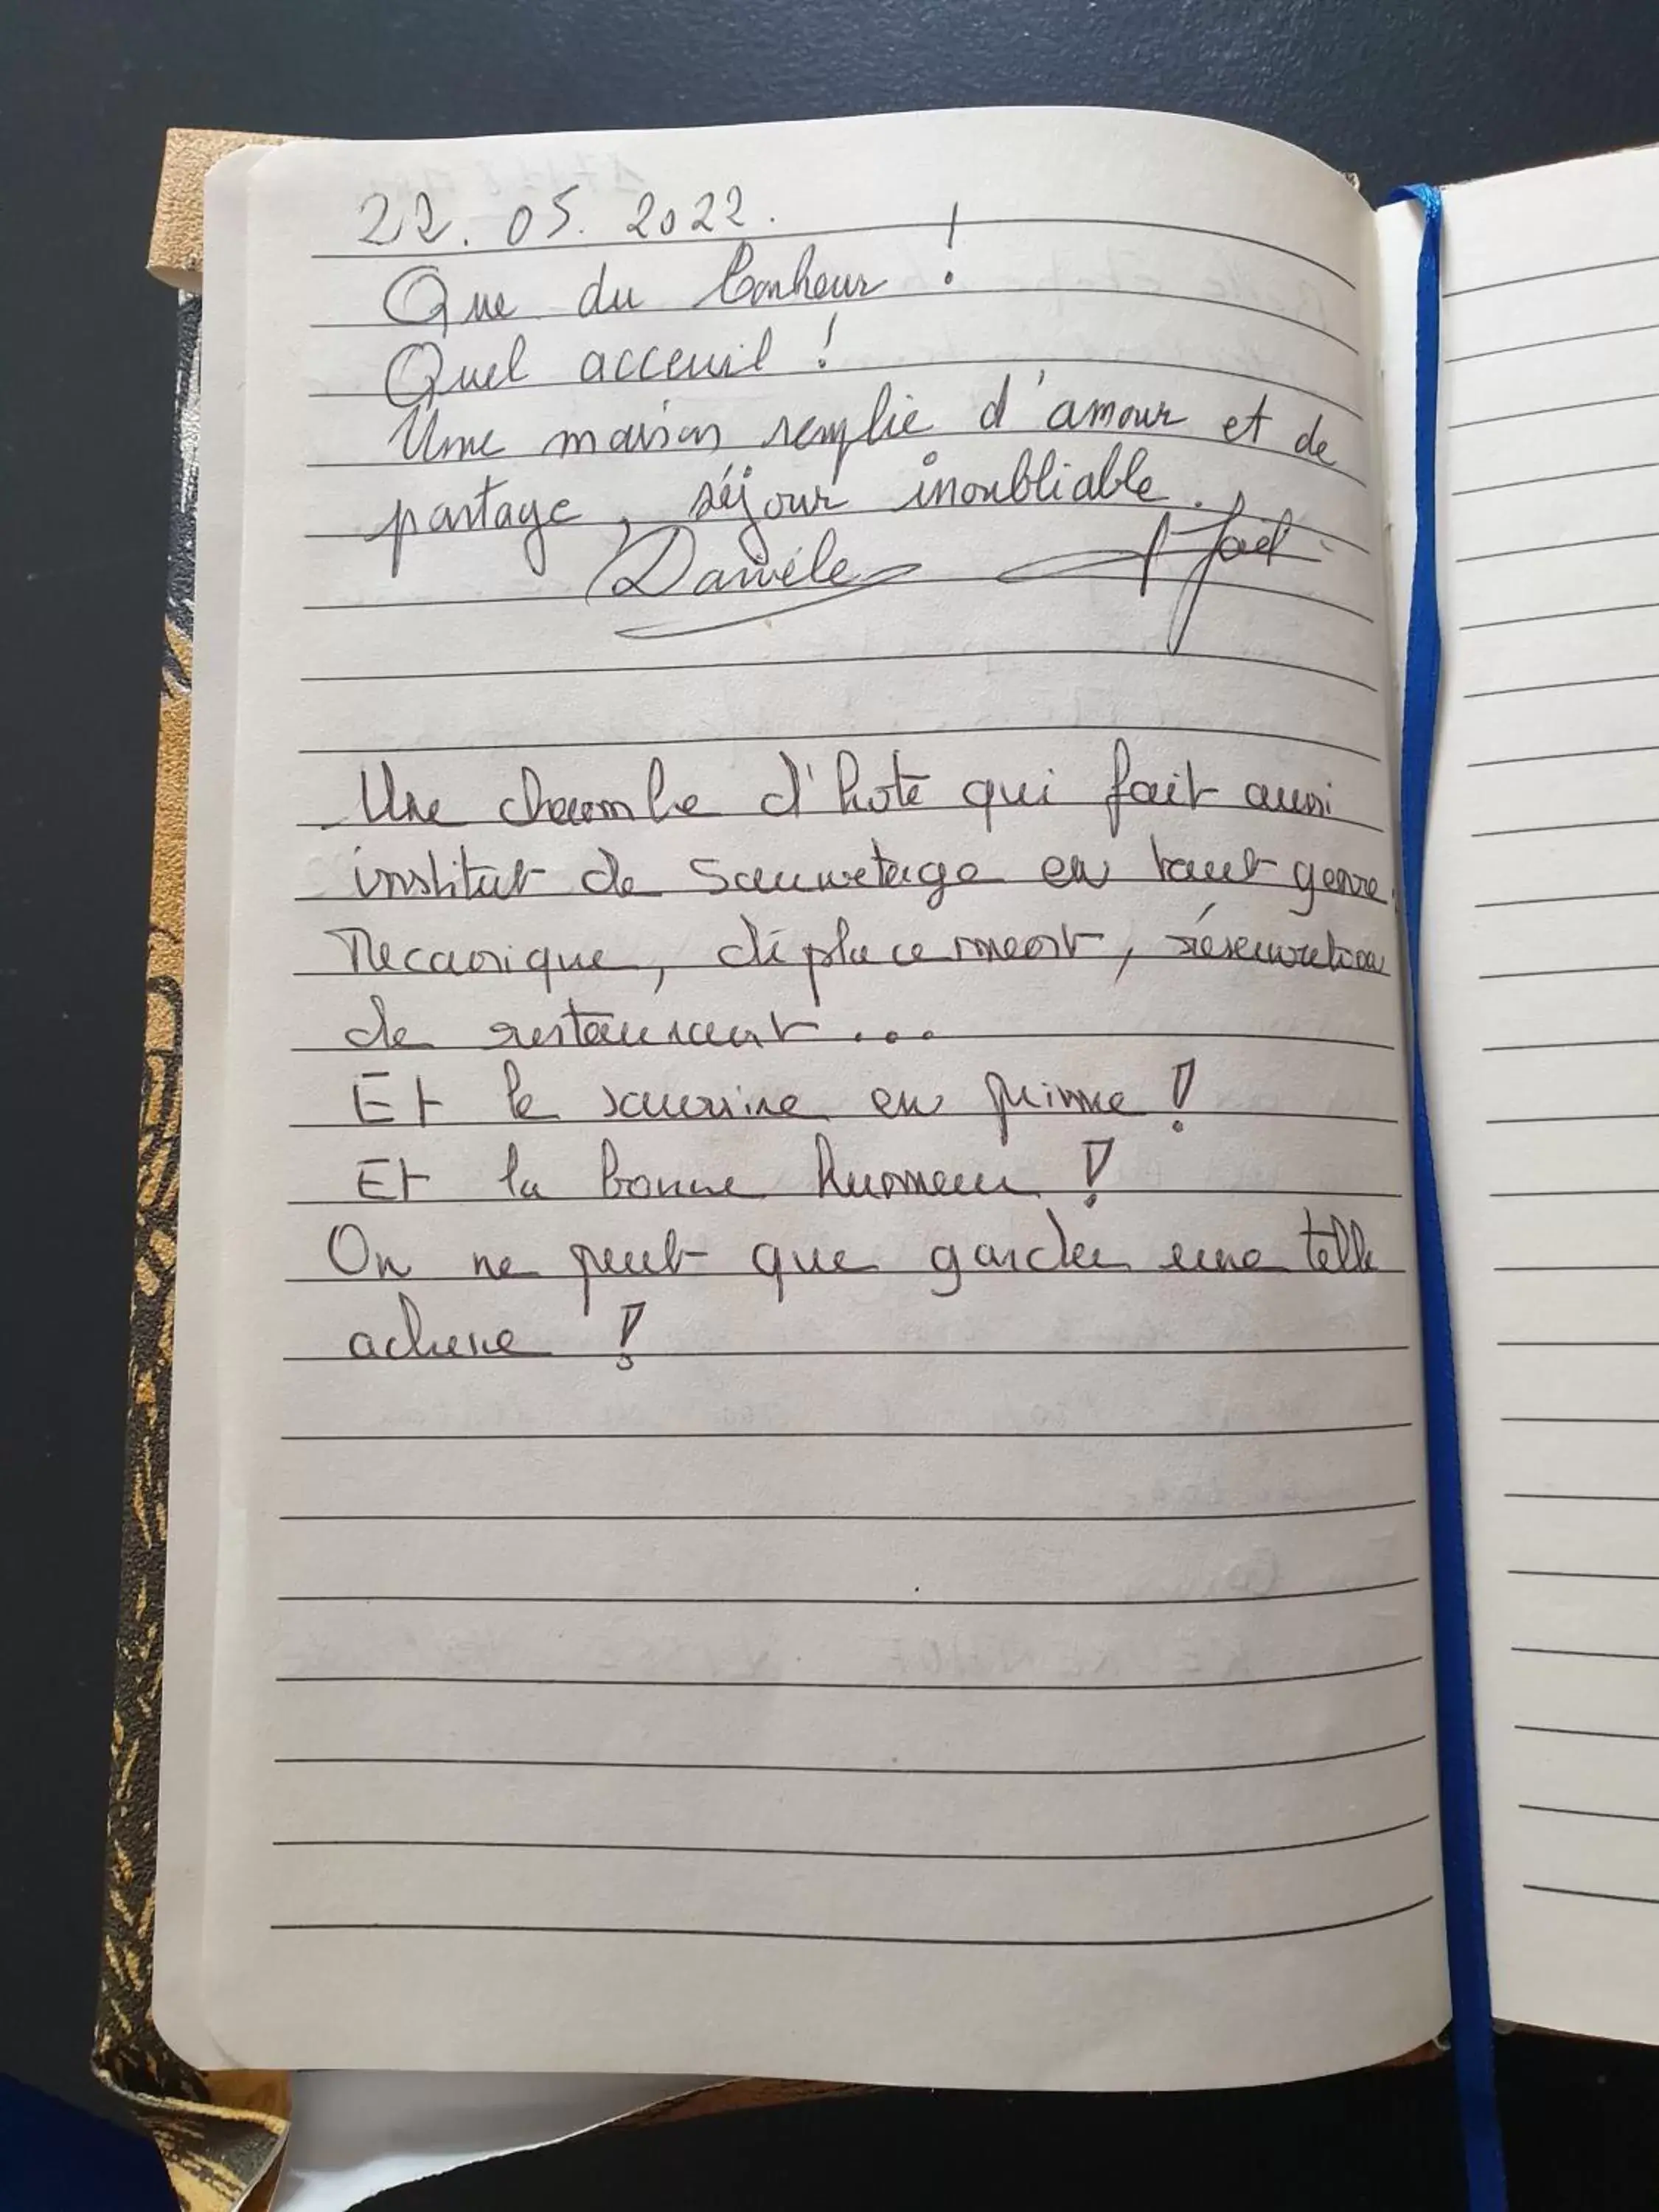 22. 05. 2022.
Que du bonheur !
Quel acceuil !
Une maison remplie d'amour et de
partage, séjour inoubliable.
Danièle Joël
Une chambre d'hote qui fait aussi
institut de sauvetage en tout genre.
Mecanique, déplacement, réservation
de restaurant...
Et le sourire en prime !
Et la bonne humeur !
On ne peut que garder une telle
adresse !